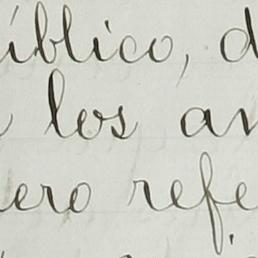 úblico, d
los an
ero refe